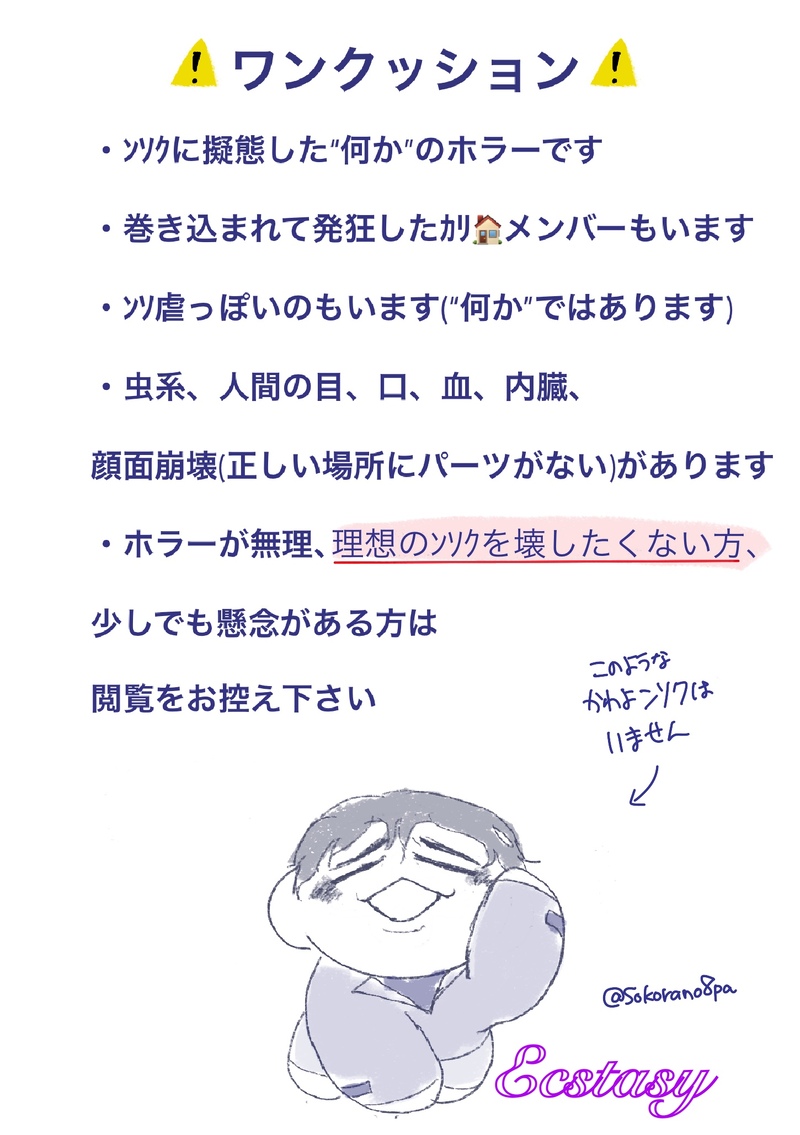 ⚠ワンクッション⚠
・ﾝｿｸに擬態した“何か”のホラーです
・巻き込まれて発狂したｶﾘ🏠メンバーもいます
・ﾝｿ虐っぽいのもいます(“何か”ではあります)
・虫系、人間の目、口、血、内臓、
顔面崩壊(正しい場所にパーツがない)があります
・ホラーが無理、理想のﾝｿｸを壊したくない方、
少しでも懸念がある方は
閲覧をお控え下さい
このような
かわよンソクは
いません
@sokorano8pa
Ecstasy